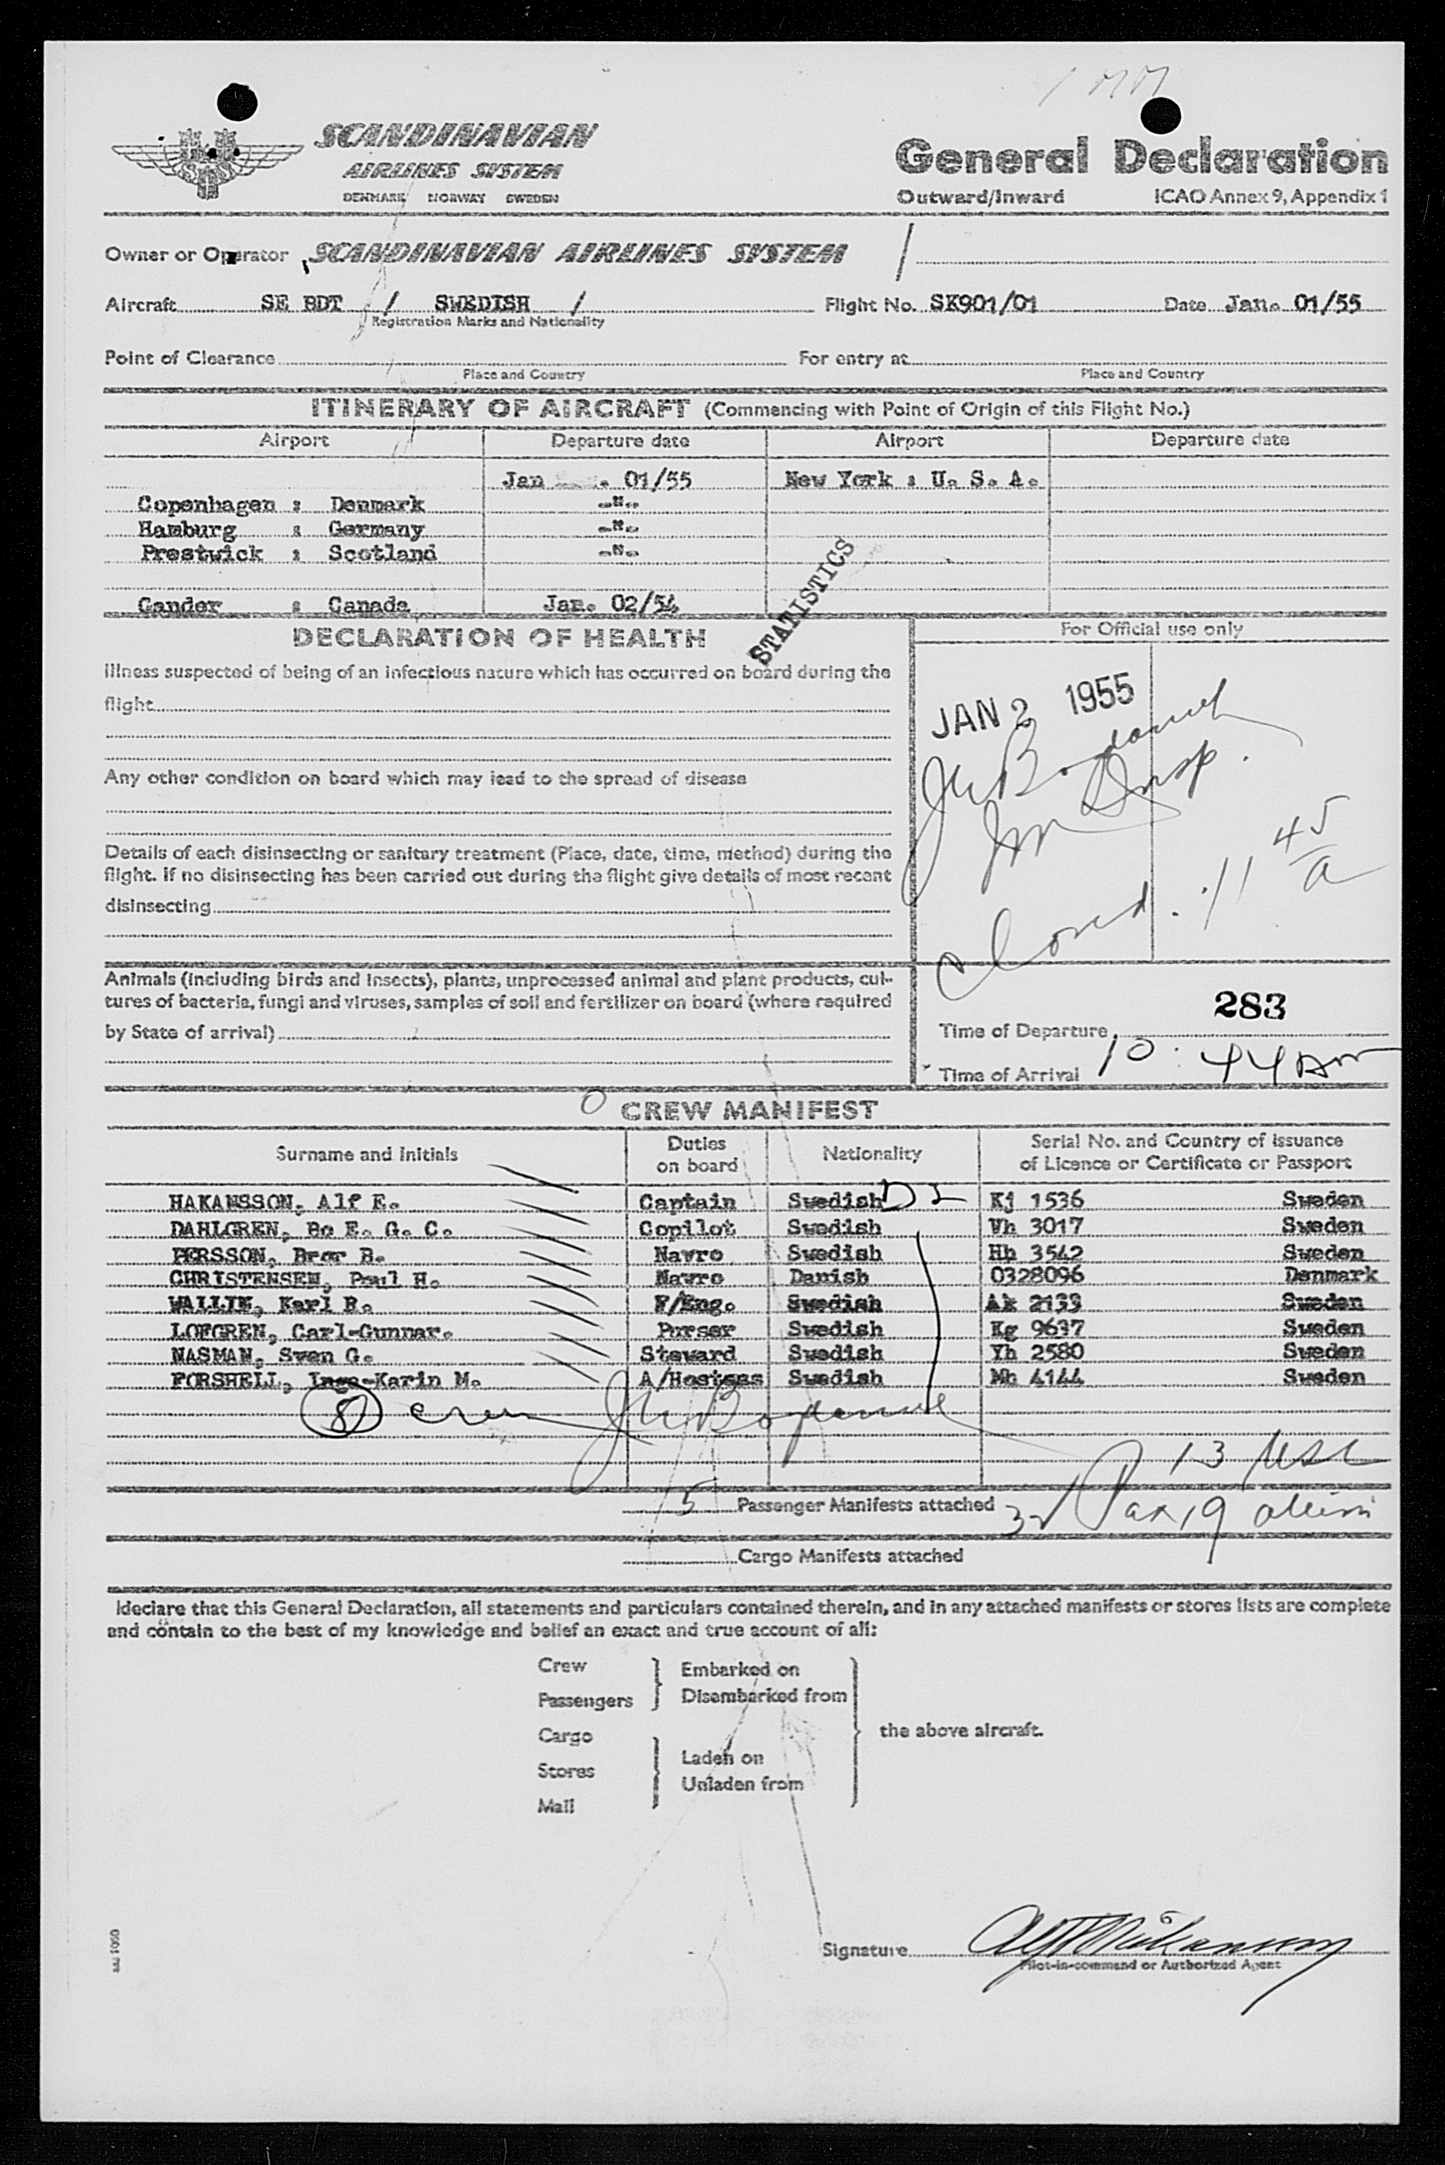 SCANDINAVIAN
AIRLINES SYSTEM
DENMARK NORWAY SWEDEN
General Declaration
Outward/Inward ICAO Annex 9, Appendix 1
Owner or Operator SCANDINAVIAN AIRLINES SYSTEM /
Aircraft SE BDT / SWEDISH / Flight No. SK901/01 Date Jan. 01/55
Registration Marks and Nationality
Point of Clearance For entry at
Place and Country Place and Country
ITINERARY OF AIRCRAFT (Commencing with Point of Origin of this Flight No.)
Airport Departure date Airport Departure date
Jan . 01/55 New York : U. S. A.
Copenhagen : Denmark -"-
Hamburg : Germany -"-
Prestwick : Scotland -"-
Gander : Canada Jan. 02/54
STATISTICS
DECLARATION OF HEALTH
For Official use only
Illness suspected of being of an infectious nature which has occurred on board during the
flight
JAN 2 1955
Any other condition on board which may lead to the spread of disease
Insp.
Details of each disinsecting or sanitary treatment (Place, date, time, method) during the
flight. If no disinsecting has been carried out during the flight give details of most recent
disinsecting
11 45/a
Animals (including birds and insects), plants, unprocessed animal and plant products, cul-
tures of bacteria, fungi and viruses, samples of soil and fertilizer on board (where required
by State of arrival)
283
Time of Departure
Time of Arrival 10:44 AM
CREW MANIFEST
Surname and Initials Duties on board Nationality Serial No. and Country of Issuance of Licence or Certificate or Passport
HAKANSSON, Alf E. Captain Swedish Kj 1536 Sweden
DAHLGREN, Bo E. G. C. Copilot Swedish Vh 3017 Sweden
PERSSON, Bror B. Navro Swedish Hh 3542 Sweden
CHRISTENSEN, Poul H. Navro Danish 0328096 Denmark
WALLIN, Karl R. F/Eng. Swedish Ak 2139 Sweden
LOFGREN, Carl-Gunnar. Purser Swedish Kg 9637 Sweden
NASMAN, Sven G. Steward Swedish Yh 2580 Sweden
FORSHELL, Inga-Karin M. A/Hostess Swedish Mh 4144 Sweden
8 crew
13 USC
5 Passenger Manifests attached
32 Pax 19 aliens
Cargo Manifests attached
I declare that this General Declaration, all statements and particulars contained therein, and in any attached manifests or stores lists are complete
and contain to the best of my knowledge and belief an exact and true account of all:
Crew
Passengers
Cargo
Stores
Mail
Embarked on
Disembarked from
Laden on
Unladen from
the above aircraft.
Signature
Pilot-in-command or Authorized Agent